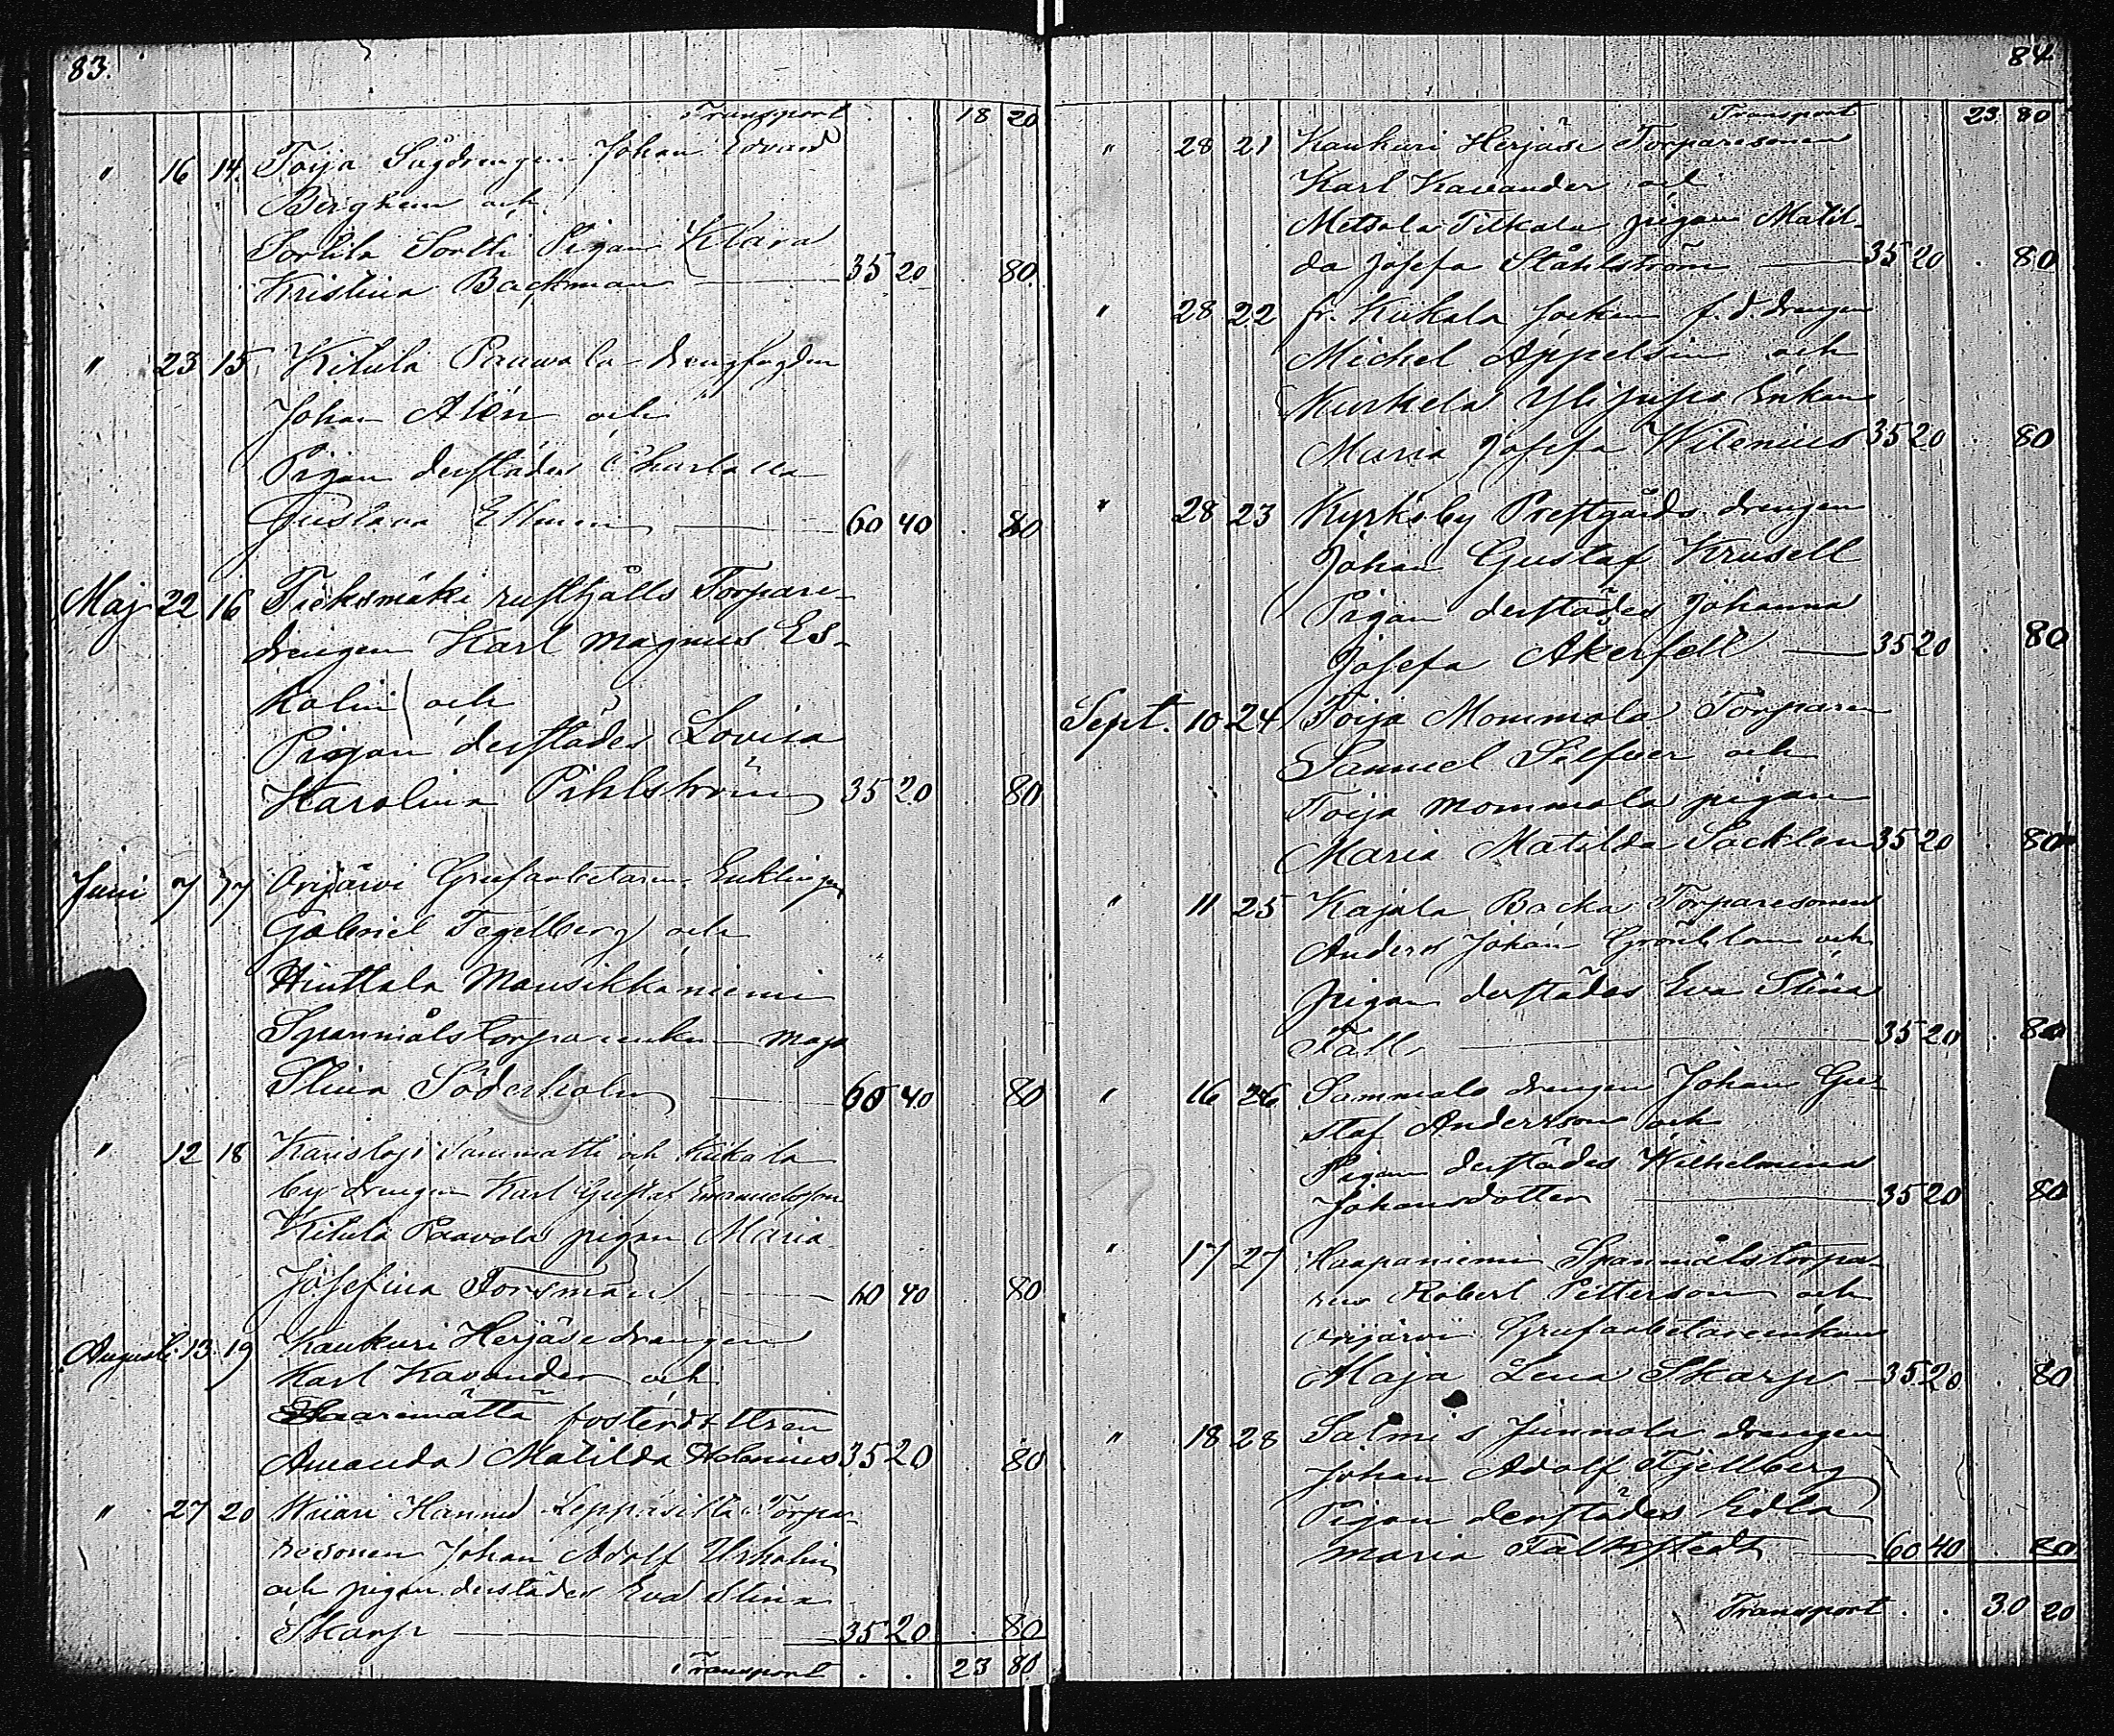 83.
Transport . . 18 20
" 16 14. Toija Sågdrengen Johan Edvard
Berghem och
Sorlila Sortti Pigan Klara
Kristina Backman — 35 20 . 80.
" 23 15 Kitula Pauwola drengfogden
Johan Alén och
Pigan derstädes Charlotta
Gustava Ellmen — 60 40 . 80
Maj 22 16 Tieksmäki rusthålls Torpare-
drengen Karl Magnus Es-
kolin och
Pigan derstädes Lovisa
Karolina Pihlström 35 20 80
Juni 7 17 Orijärvi Grufarbetaren Enklingen
Gabriel Tegelberg och
Hinttala Mansikkaniemi
Spanmålstorpareenkan Maja
Stina Söderholm — 60 40 80
" 12 18 Karislojo Sammatti och Kiikala
by drengen Karl Gustaf Emanuelsson
Kitula Paavola pigan Maria
Josefina Forsman — 60 40 80
Augusti 13 19 Kaukuri Herjäse drengen
Karl Kavander och
fosterdottren
Amanda Matilda Helenius 35 20 80
" 27 20 Wiiari Hannus Leppäsilta Torpa-
resonen Johan Adolf Urholin
och pigan derstädes Eva Stina
Skarp — 35 20 . 80
Transport . . 23 80
84
Transport 23 80
" 28 21 Kaukuri Herjäse Torparesonen
Karl Kavander och
Metsola Tilkala pigan Matil-
da Josefa Ståhlström — 35 20 . 80
" 28 22 fr. Kiikala Socken f.d. drengen
Michel Appelsin och
Kurkela Ylijuso Enkan
Maria Josefa Wilenius 35 20 . 80
" 28 23 Kyrksby Prestgårds drengen
Johan Gustaf Krusell
Pigan derstädes Johanna
Josefa Åkerfelt — 35 20 . 80
Sept. 10 24 Toija Mommola Torparen
Samuel Silfver och
Toija Mommola pigan
Maria Matilda Sacklen 35 20 80
" 11 25 Kajala Backa Torparesonen
Anders Johan Grönblom och
Pigan derstädes Eva Stina
Fäll — 35 20 . 80
" 16 26 Sammalo drengen Johan Gu-
staf Andersson och
Pigan derstädes Wilhelmina
Johansdotter — 35 20 80
" 17 27 Haapaniemi Spanmålstorpa-
ren Robert Petterson och
Orijärvi Grufarbetareenkan
Maja Lena Skarp — 35 20 . 80
" 18 28 Salmis Junnola drengen
Johan Adolf Fjellberg
Pigan derstädes Edla
Maria Falkstedt — 60 40 . 80
Transport . . 30 20